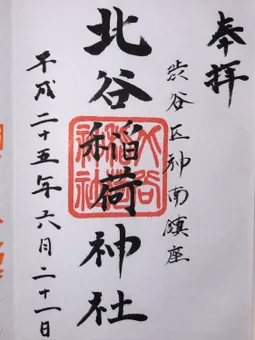 奉拝
渋谷区神南鎮座
北谷稲荷神社
平成二十五年六月二十一日